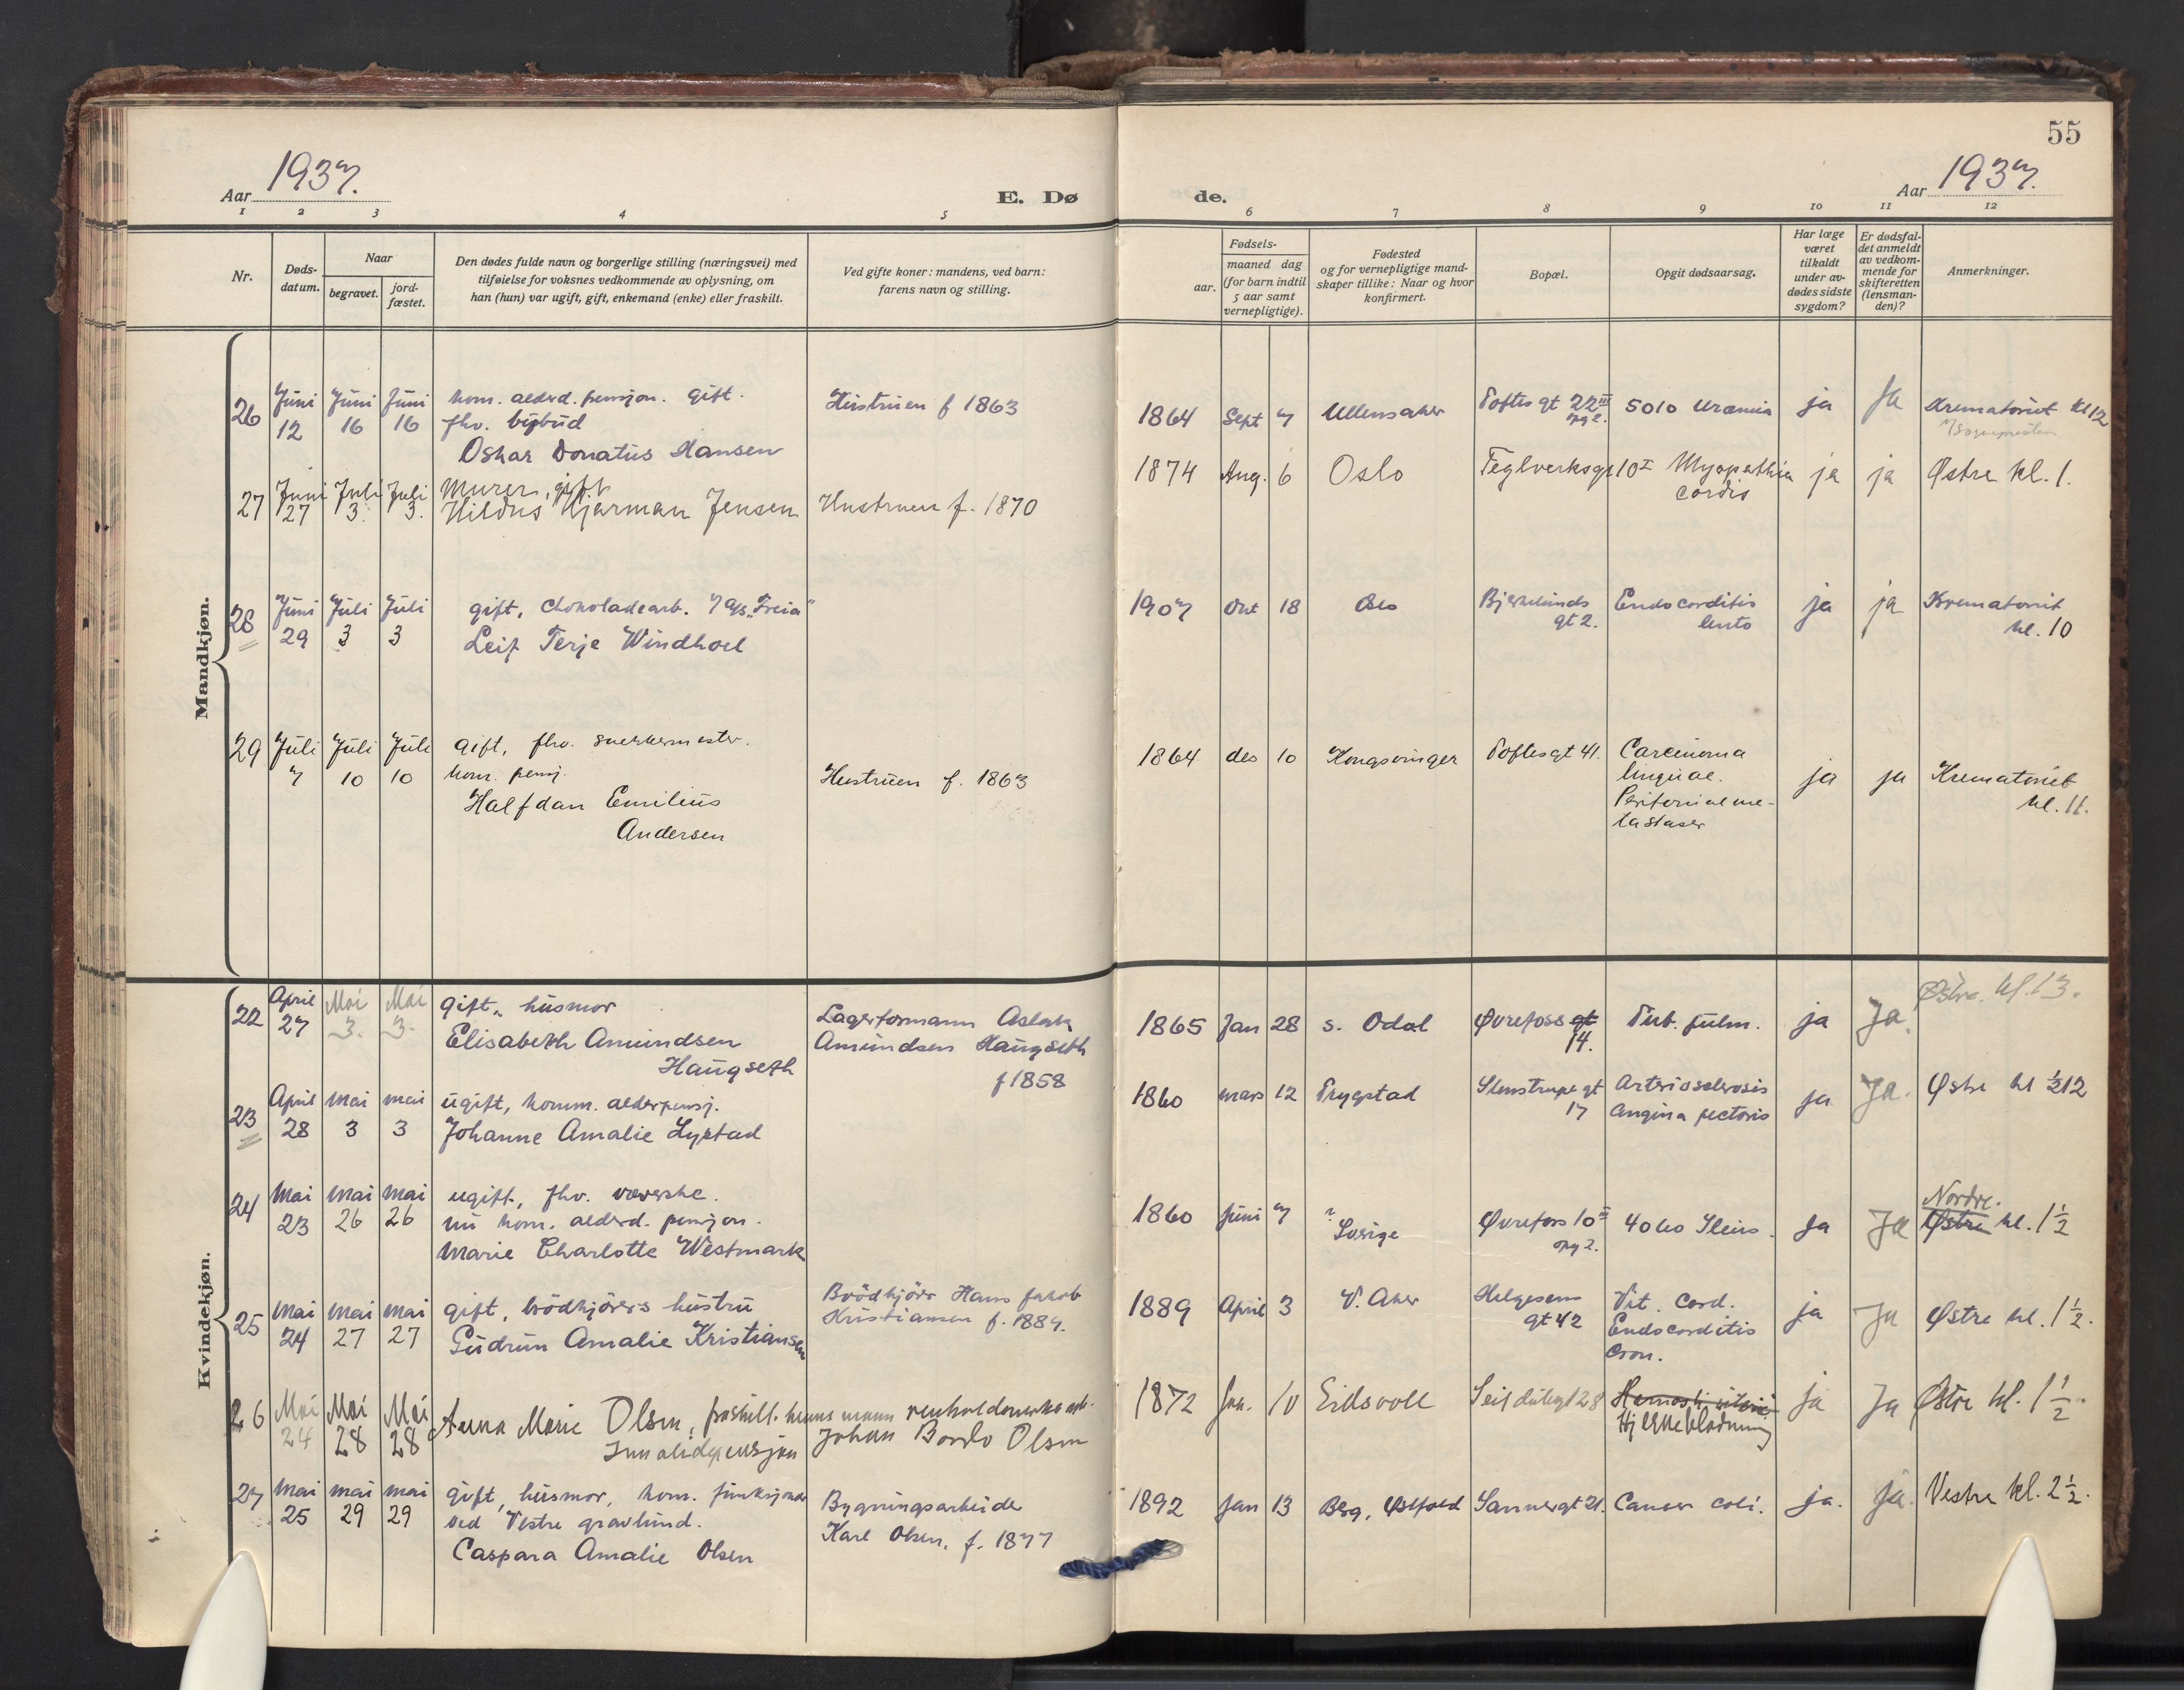 55
Aar 1937.
E. Dø
de.
Aar 1937.
1 2 3 4 5 6 7 8 9 10 11 12
Nr.
Døds-
datum.
Naar
begravet.
jord-
fæstet.
Den dødes fulde navn og borgerlige stilling (næringsvei) med
tilføielse for voksnes vedkommende av oplysning, om
han (hun) var ugift, gift, enkemand (enke) eller fraskilt.
Ved gifte koner: mandens, ved barn:
farens navn og stilling.
Fødsels-
aar.
maaned dag
(for barn indtil
5 aar samt
vernepligtige).
Fødested
og for vernepligtige mand-
skaper tillike: Naar og hvor
konfirmert.
Bopæl.
Opgit dødsaarsag.
Har læge
været
tilkaldt
under av-
dødes sidste
sygdom?
Er dødsfal-
det anmeldt
av vedkom-
mende for
skifteretten
(lensman-
den)?
Anmerkninger.
Mandkjøn.
26
Juni
12
Juni
16
Juni
16
kom. alderd. pensjon. gift.
fhv. bybud
Oskar Donatus Hansen
Hustruen f 1863
1864
Sept
7
Ullensaker
Toftes gt 22 III
opg 2.
5010 Uræmia
ja
Ja
Krematoriet kl 12
27
Juni
27
Juli
3.
Juli
3.
Murer, gift
Hildus Hjarman Jensen
Hustruen f. 1870
1874
Aug.
6
Oslo
Teglverksgt 10 I
Myopathia
cordis
ja
ja
Østre kl. 1.
28
Juni
29
Juli
3
Juli
3
gift, chokoladearb. v/ A/S. "Freia"
Leif Terje Windhoel
1907
Okt
18
Oslo
Bjerkelunds
gt 2.
Endocorditis
lento
ja
ja
Krematoriet
kl. 10
29
Juli
7
Juli
10
Juli
10
gift, fhv. snekkermester.
kom. pensj.
Halfdan Emilius
Andersen
Hustruen f. 1863
1864
des
10
Kongsvinger
Toftesgt 41.
Carcinoma
linguae.
Peritonial me-
tastaser
ja
ja
Krematoriet
kl. 11.
Kvindekjøn.
22
April
27
Mai
3.
Mai
3.
gift, husmor
Elisabeth Amundsen
Haugseth
Lagerformann Aslak
Amundsen Haugseth
f 1858
1865
Jan
28
s. Odal
Øvrefoss gt
14.
Tub. pulm.
ja
Ja.
Østre. kl. 13.
23
April
28
mai
3
mai
3
ugift, komm. alderpensj.
Johanne Amalie Lystad
1860
mars
12
Trygstad
Stenstrupsgt
17
Arteriosclerosis
Angina pectoris
ja
Ja.
Østre kl ½12
24
Mai
23
mai
26
mai
26
ugift, fhv. væverske.
nu kom. alderd. pensjon.
Marie Charlotte Westmark
1860
Juni
7
Sverige
Øvrefoss 10 III
opg 2.
4060 Ileus.
Ja
Ja
Nordre.
Østre kl. 1½
25
Mai
24
mai
27
mai
27
gift, brödkjörers hustru
Gudrun Amalie Kristiansen
Brödkjörer Hans Jakob
Kristiansen f. 1889.
1889
April
3
V. Aker
Helgesens
gt 42
Vit. Cord.
Endocorditis
Cron.
ja
Ja
Østre kl. 1½.
26
Mai
24
Mai
28
Mai
28
Anna Marie Olsen, fraskilt.
Invalidepensjon
hennes mann renholdsverksarb.
Johan Bordo Olsen
1872
Jan.
10
Eidsvoll
Seilduksgt 28
Hjerneblødning
ja
Ja
Østre kl. 1½.
27
Mai
25
mai
29
mai
29
gift, husmor, kom. funksjonær
ved Vestre gravlund.
Caspara Amalie Olsen
Bygningsarbeider
Karl Olsen, f. 1877
1892
Jan
13
Berg, Østfold
Sannergt 21.
Cancer coli.
ja.
ja.
Vestre kl. 2½.